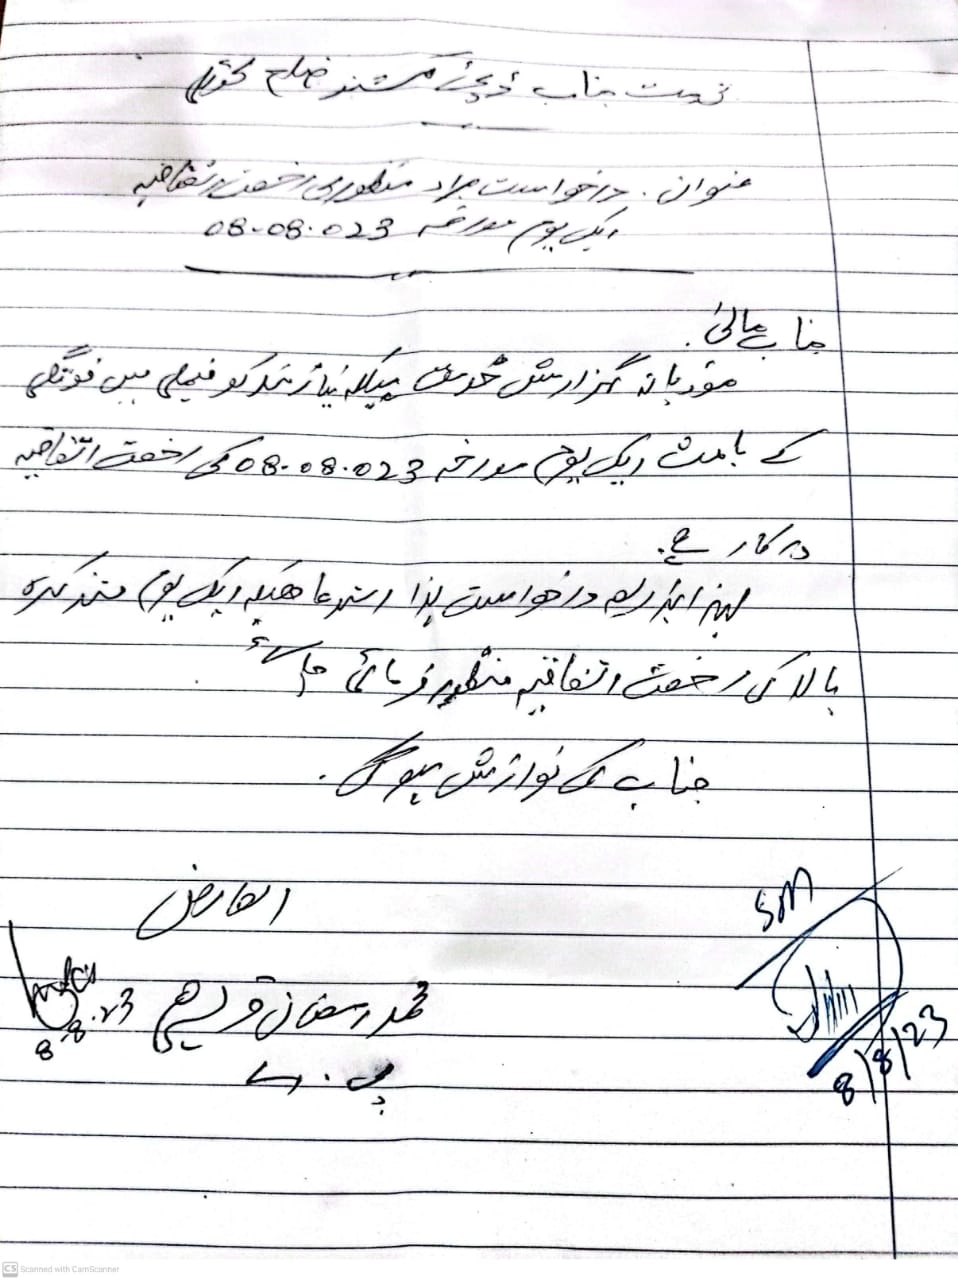 خدمت جناب ڈپٹی کمشنر ضلع کوٹلی
عنوان۔ درخواست بمراد منظوری رخصت اتفاقیہ
ایک یوم مورخہ 08.08.023
جناب عالیٰ۔
مؤدبانہ گزارش خدمت ہیکہ نیازمند کو فیملی میں فوتگی
کے باعث ایک یوم مورخہ 08.08.023 کی رخصت اتفاقیہ
درکار ہے۔
لہذا بذریعہ درخواست ہذا استدعا ھیکہ ایک یوم متذکرہ
بالا کی رخصت اتفاقیہ منظور فرمائی جائے
جناب کی نوازش ہوگی۔
العارض
محمد رمضان قریشی
پی۔اے
8.8.23
8/8/23
CS Scanned with CamScanner